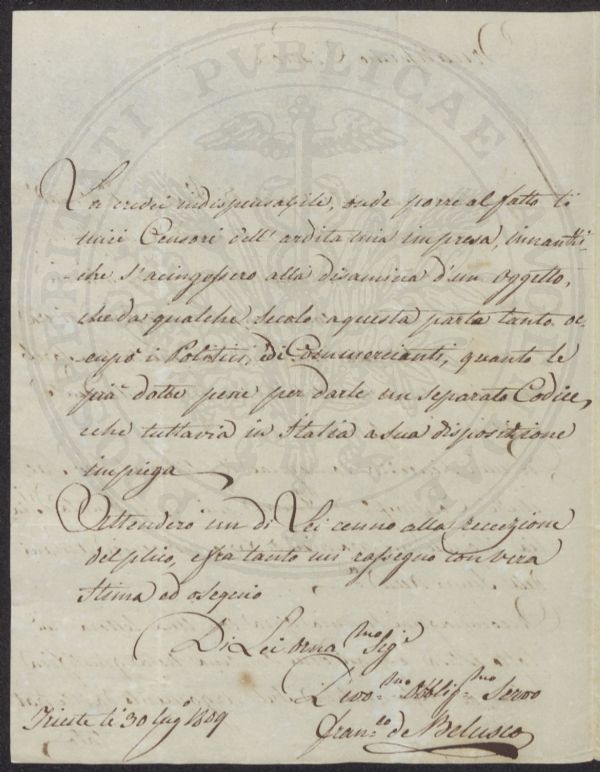 PROSPERITATI PUBLICAE
La credei indispensabile, onde porre al fatto li
miei Censori dell' ardita mia impresa, innanti-
che s'acingessero alla disamina d'un oggetto,
che da qualche secolo a questa parte tanto oc-
cupò i Politici, ed i Commercianti, quanto le
più dotte pene per darle un separato Codice,
che tuttavia in Italia a sua disposizione
impiega
Attenderò un di Lei cenno alla recezione
del plico, e fra tanto mi rassegno con vera
Stima ed osequio
Di Lei orna.mo Sig.e
Devo.mo Obblig.mo Servo
Trieste li 30 lug.o 1809
Fran.co de Belusco